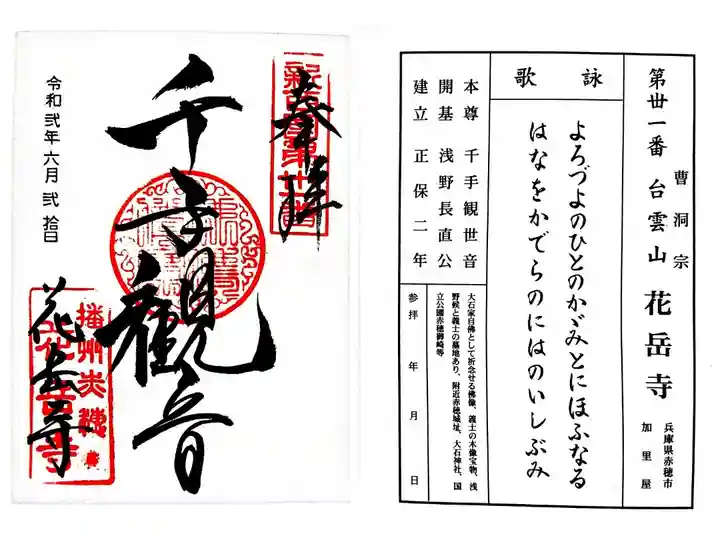 奉拝
千手観音
花岳寺
令和弐年六月弐拾日
曹洞宗
第丗一番 台雲山 花岳寺
兵庫県赤穂市
加里屋
詠歌
よろづよのひとのかゞみとにほふなる
はなをかでらのにはのいしぶみ
本尊 千手観世音
開基 浅野長直公
建立 正保二年
大石家自佛として祈念せる佛像、義士の木像宝物、浅
野候と義士の墓地あり、附近赤穂城址、大石神社、国
立公園赤穂御崎等
参拝 年 月 日